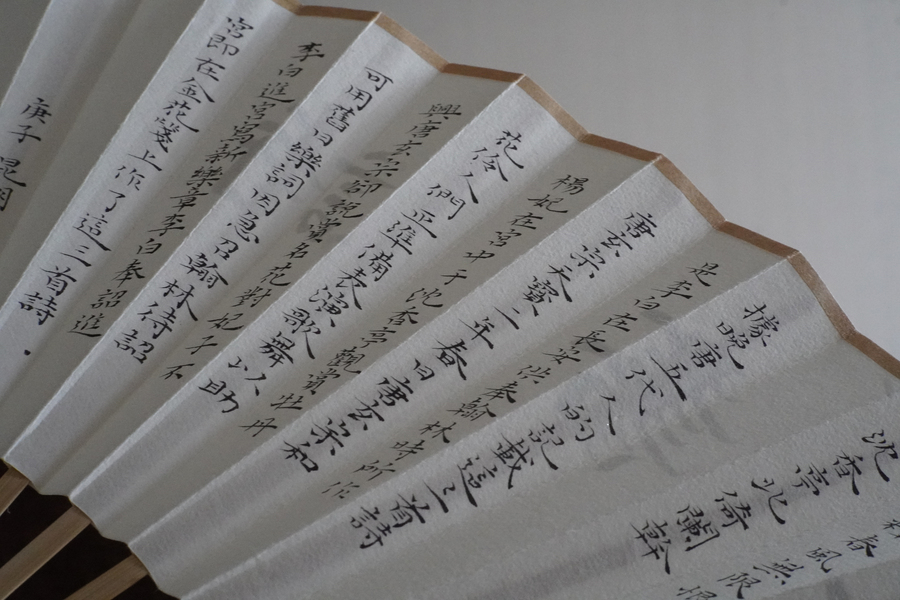 春風無限恨
沈香亭北倚闌幹
據晚唐五代人的記載這三首詩
是李白在長安供奉翰林時所作
唐玄宗天寶二年春日唐玄宗和
楊妃在宮中于沈香亭觀賞牡丹
花伶人們正準備表演歌舞以助
興唐玄宗卻說賞名花對妃子不
可用舊日樂詞因急召翰林待詔
李白進宮寫新樂章李白奉詔進
宮即在金花箋上作了這三首詩.
庚子 昆明